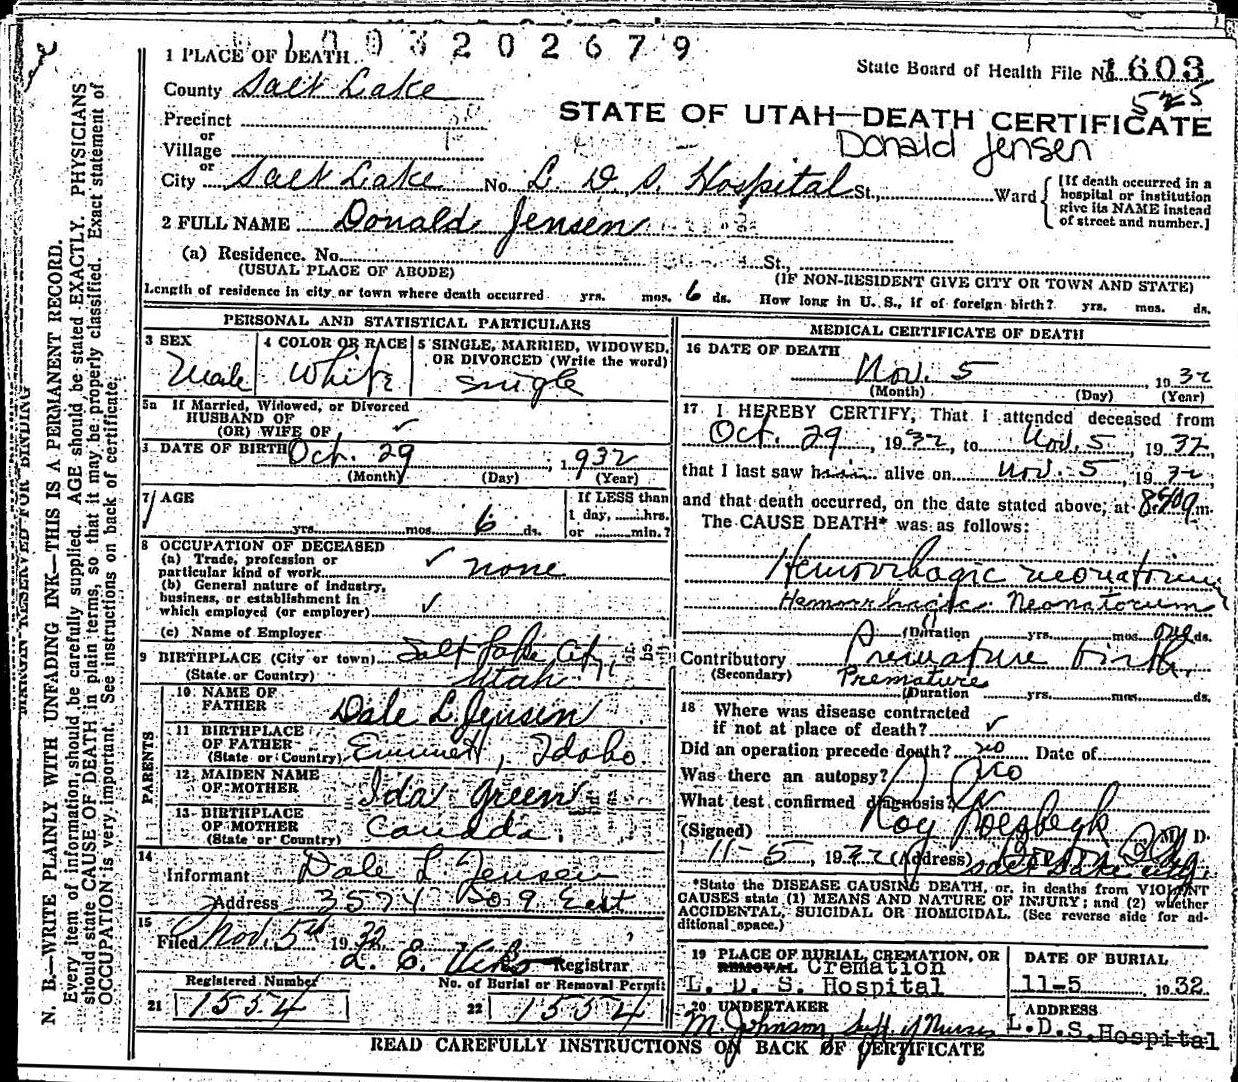 1003202679
1 PLACE OF DEATH
State Board of Health File No. 1603
County Salt Lake
525
Precinct
STATE OF UTAH—DEATH CERTIFICATE
or
Donald Jensen
Village
or
City Salt Lake No. L. D. S. Hospital St., Ward
[If death occurred in a hospital or institution give its NAME instead of street and number.]
2 FULL NAME Donald Jensen
(a) Residence. No. St.,
(USUAL PLACE OF ABODE) (IF NON-RESIDENT GIVE CITY OR TOWN AND STATE)
Length of residence in city or town where death occurred yrs. mos. 6 ds. How long in U. S., if of foreign birth? yrs. mos. ds.
PERSONAL AND STATISTICAL PARTICULARS
3 SEX 4 COLOR OR RACE 5 SINGLE, MARRIED, WIDOWED, OR DIVORCED (Write the word)
Male White Single
5a If Married, Widowed, or Divorced
HUSBAND OF
(OR) WIFE OF ✓
DATE OF BIRTH Oct. 29, 1932
(Month) (Day) (Year)
7 AGE
If LESS than
1 day, hrs.
yrs. mos. 6 ds. or min.?
8 OCCUPATION OF DECEASED
(a) Trade, profession or
particular kind of work ✓ none
(b) General nature of industry,
business, or establishment in
which employed (or employer) ✓
(c) Name of Employer
9 BIRTHPLACE (City or town) Salt Lake City
(State or Country) Utah
PARENTS
10 NAME OF
FATHER Dale L. Jensen
11 BIRTHPLACE
OF FATHER
(State or Country) Emmett, Idaho.
12 MAIDEN NAME
OF MOTHER Ida Green
13 BIRTHPLACE
OF MOTHER Canada.
(State or Country)
14
Informant Dale L Jensen
Address 3574 So 9 East
15
Filed Nov. 5th 1932
L. E. Registrar
Registered Number No. of Burial or Removal Permit
21 1554 22 1554
MEDICAL CERTIFICATE OF DEATH
16 DATE OF DEATH
Nov. 5, 1932
(Month) (Day) (Year)
17 I HEREBY CERTIFY, That I attended deceased from
Oct. 29, 1932, to Nov. 5 1932,
that I last saw him alive on Nov. 5, 1932,
and that death occurred, on the date stated above, at m.
The CAUSE DEATH* was as follows:
Hemorrhagic neonatorum
Hemorrhagic Neonatorum
(Duration yrs. mos. one ds.
Contributory Premature birth
(Secondary) Premature
(Duration yrs. mos. ds.
18 Where was disease contracted
if not at place of death? ✓
Did an operation precede death? no Date of
Was there an autopsy? no
What test confirmed diagnosis?
(Signed) Roy M. D.
11-5, 1932 (Address) Salt Lake City.
*State the DISEASE CAUSING DEATH, or, in deaths from VIOLENT
CAUSES state (1) MEANS AND NATURE OF INJURY; and (2) whether
ACCIDENTAL, SUICIDAL OR HOMICIDAL. (See reverse side for ad-
ditional space.)
19 PLACE OF BURIAL, CREMATION, OR DATE OF BURIAL
REMOVAL Cremation
L. D. S. Hospital 11-5 1932
20 UNDERTAKER ADDRESS
M Johnson, Supt. of Nurses L.D.S. Hospital
READ CAREFULLY INSTRUCTIONS ON BACK OF CERTIFICATE
MARGIN RESERVED FOR BINDING
N. B.—WRITE PLAINLY WITH UNFADING INK—THIS IS A PERMANENT RECORD.
Every item of information should be carefully supplied. AGE should be stated EXACTLY. PHYSICIANS
should state CAUSE OF DEATH in plain terms, so that it may be properly classified. Exact statement of
OCCUPATION is very important. See instructions on back of certificate.